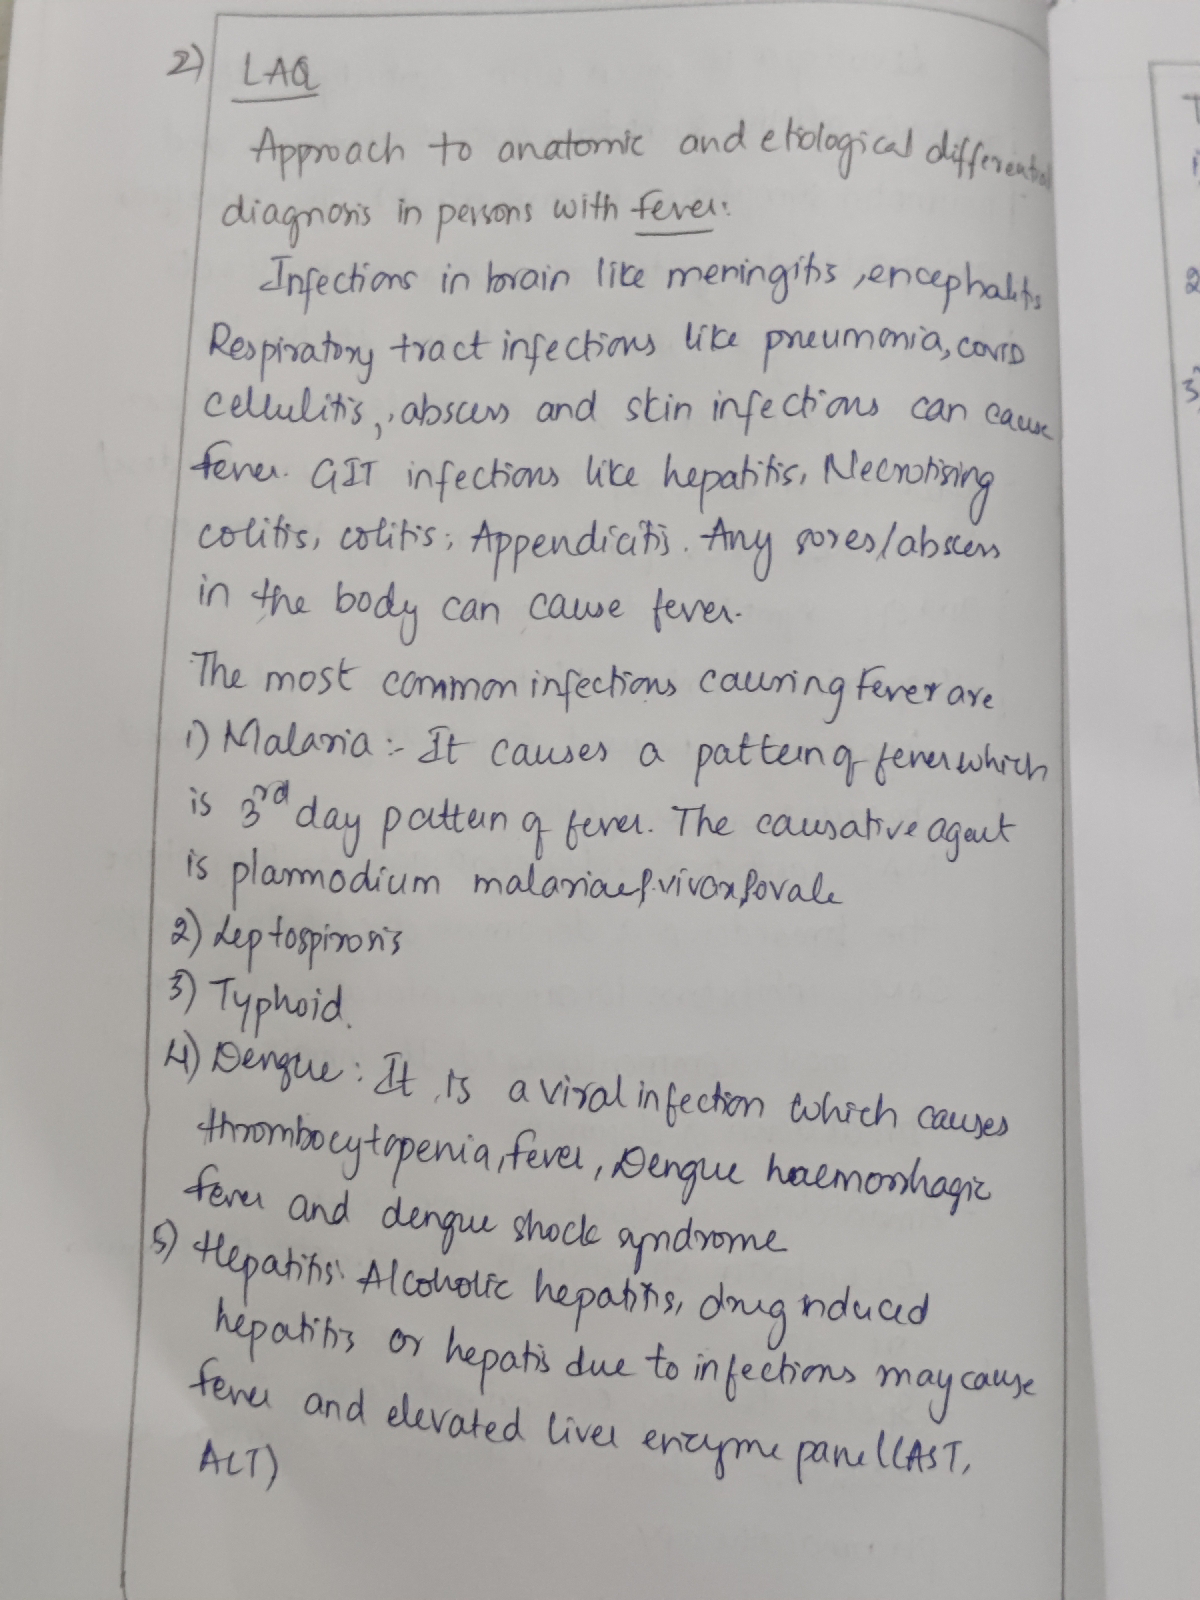 2) LAQ
Approach to anatomic and etiological differential
diagnosis in persons with fever:
Infections in brain like meningitis, encephalitis
Respiratory tract infections like pneumonia, COVID
cellulitis, abscess and skin infections can cause
fever. GIT infections like hepatitis, Necrotising
colitis, colitis, Appendicitis. Any sores/abscess
in the body can cause fever.
The most common infections causing Fever are
1) Malaria :- It causes a pattern of fever which
is 3rd day pattern of fever. The causative agent
is plasmodium malariae, p.vivax, p.ovale
2) Leptospirosis
3) Typhoid.
4) Dengue : It is a viral infection which causes
thrombocytopenia, fever, Dengue haemorrhagic
fever and dengue shock syndrome
5) Hepatitis: Alcoholic hepatitis, drug induced
hepatitis or hepatis due to infections may cause
fever and elevated liver enzyme panel (AST,
ALT)